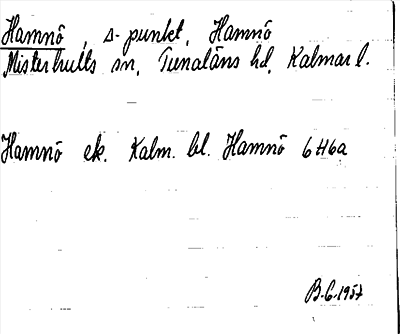 Hamnö, Δ-punkt, Hamnö
Misterhults sn, Tunaläns hd, Kalmar l.
Hamnö ek. Kalm. bl. Hamnö 6H6a
B.G. 1957